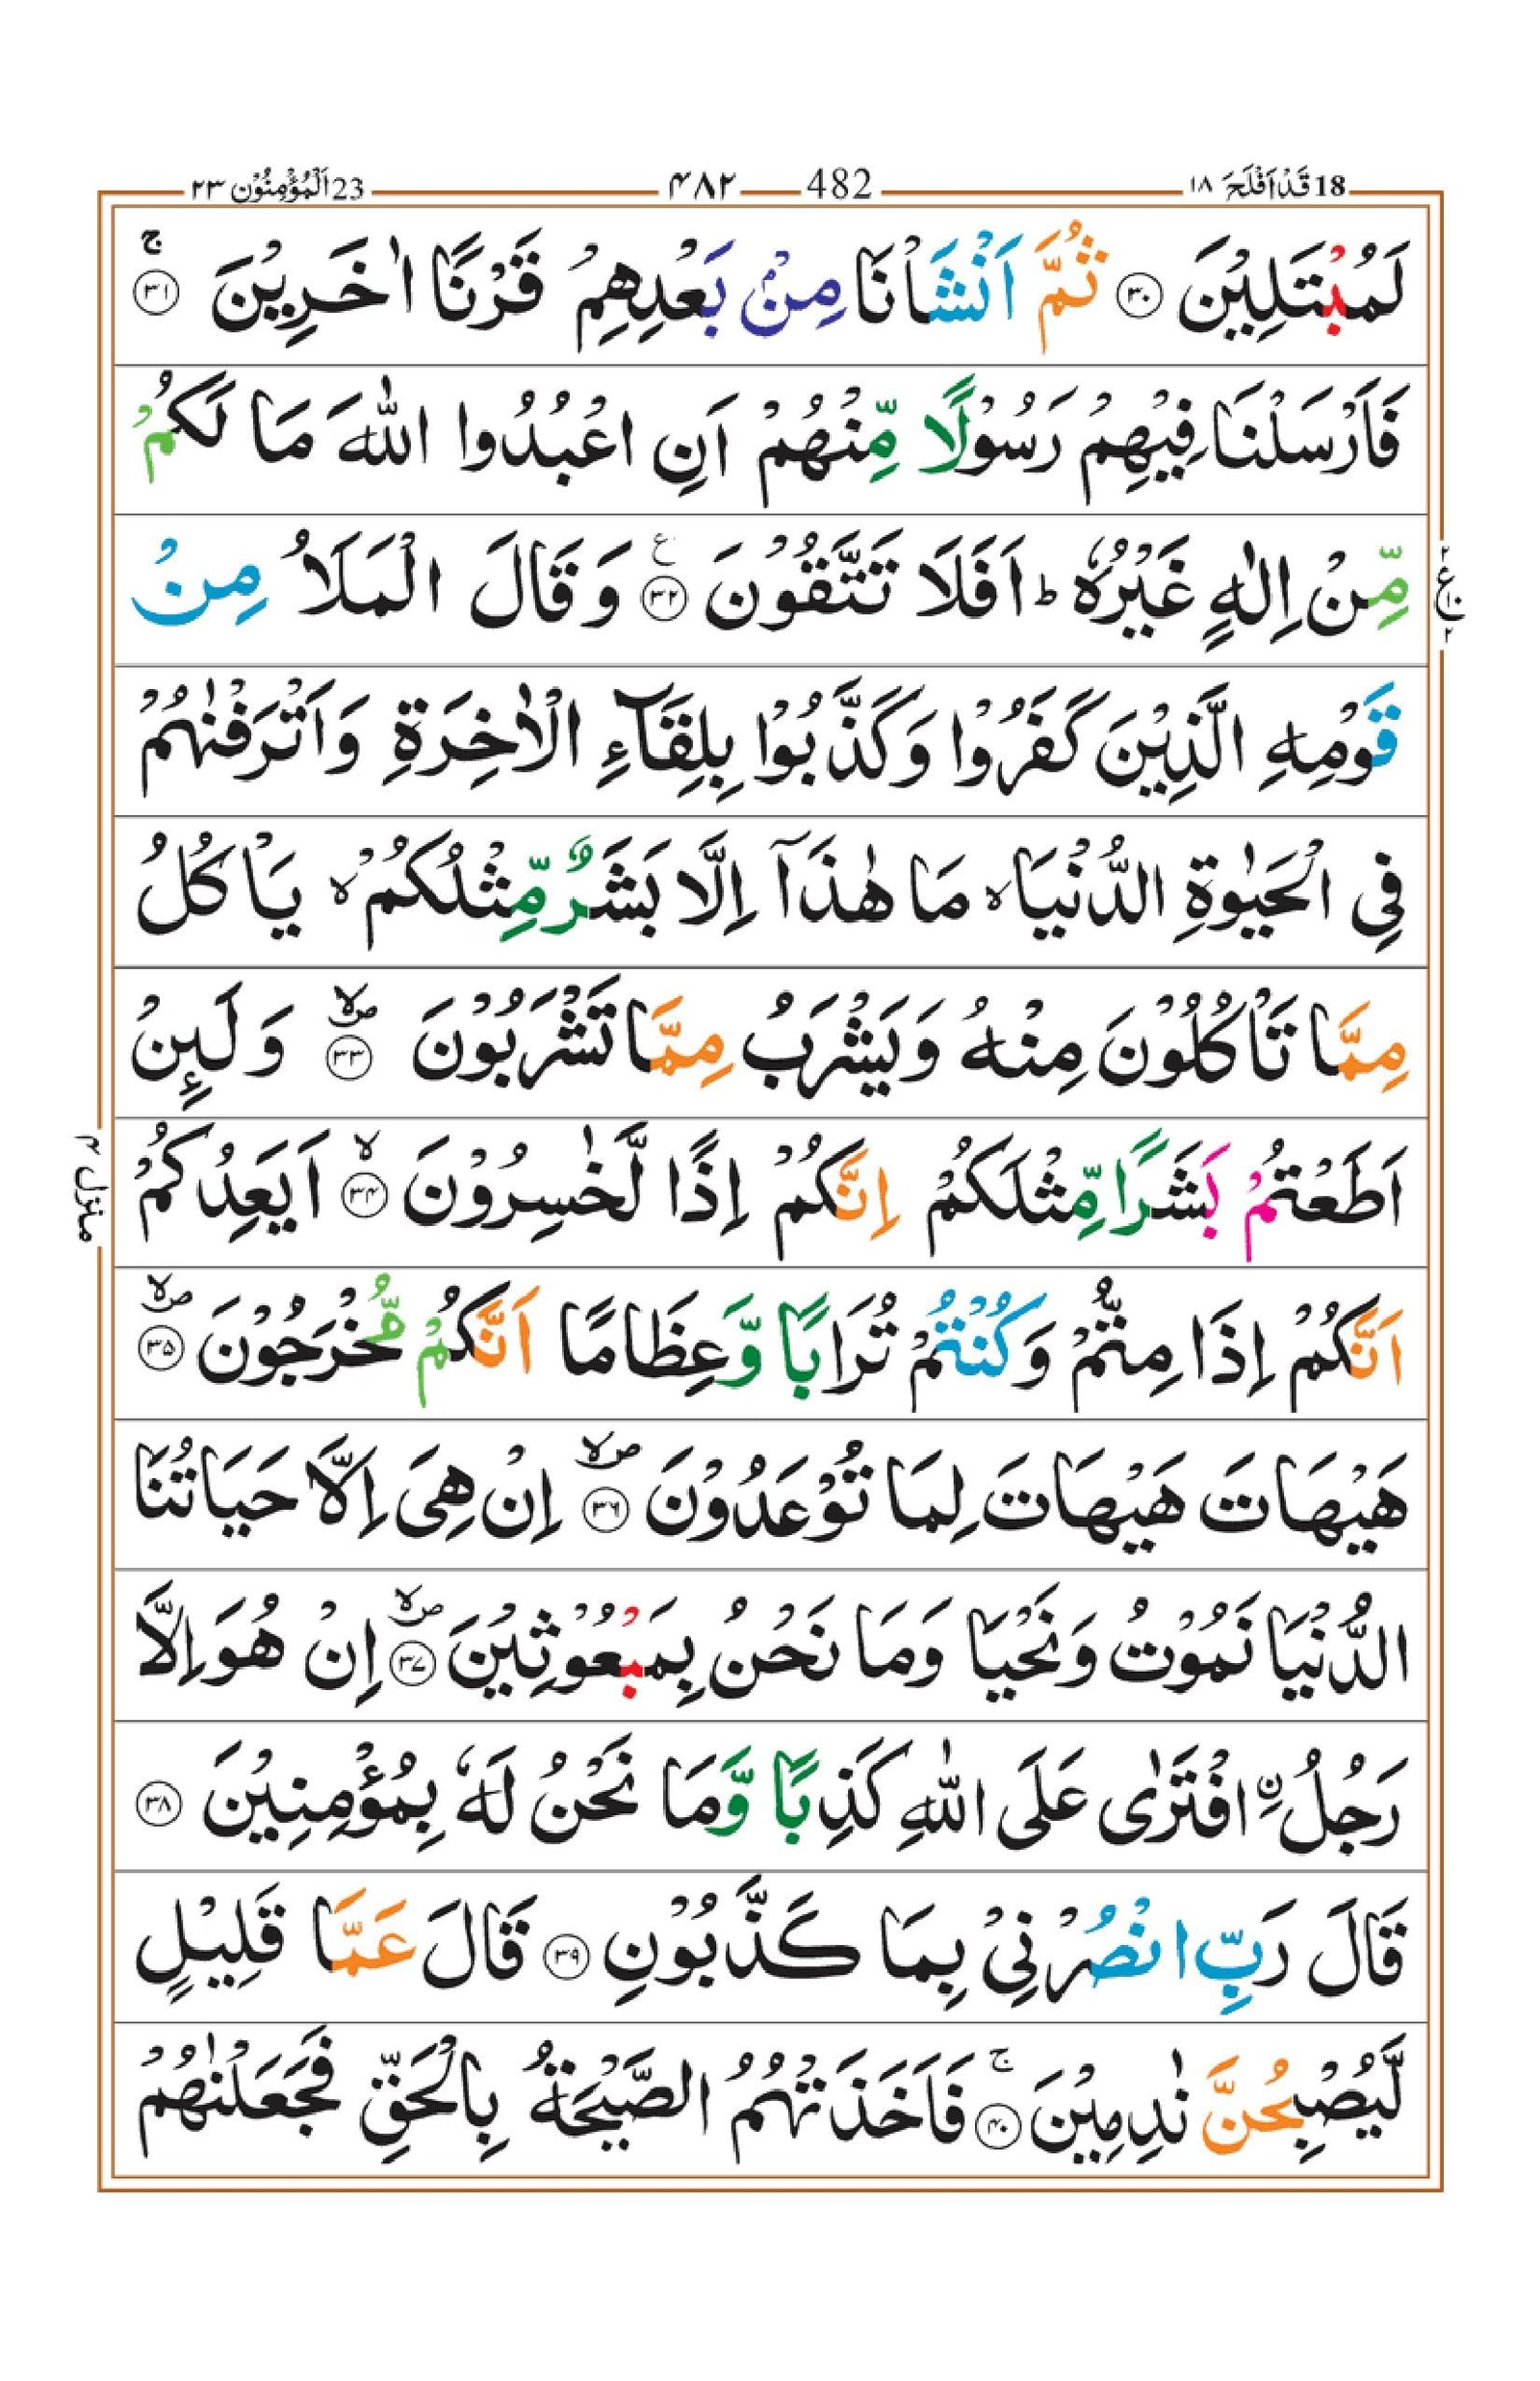 18 قَدْ اَفْلَحَ ۱۸
482 ۴۸۲
23 اَلْمُؤْمِنُوْن ۲۳
لَمُبْتَلِيْنَ ﴿۳۰﴾ ثُمَّ اَنْشَاْنَا مِنْۢ بَعْدِهِمْ قَرْنًا اٰخَرِيْنَ ۚ﴿۳۱﴾
فَاَرْسَلْنَا فِيْهِمْ رَسُوْلًا مِّنْهُمْ اَنِ اعْبُدُوا اللّٰهَ مَا لَكُمْ
مِّنْ اِلٰهٍ غَيْرُهٗ ؕ اَفَلَا تَتَّقُوْنَ ﴿۳۲﴾ ع وَقَالَ الْمَلَاُ مِنْ
ع ۲ ۱۰ ۲
قَوْمِهِ الَّذِيْنَ كَفَرُوْا وَكَذَّبُوْا بِلِقَآءِ الْاٰخِرَةِ وَاَتْرَفْنٰهُمْ
فِى الْحَيٰوةِ الدُّنْيَا ۙ مَا هٰذَاۤ اِلَّا بَشَرٌ مِّثْلُكُمْ ۙ يَاْكُلُ
مِمَّا تَاْكُلُوْنَ مِنْهُ وَيَشْرَبُ مِمَّا تَشْرَبُوْنَ ۪ۙ﴿۳۳﴾ وَلَىِٕنْ
اَطَعْتُمْ بَشَرًا مِّثْلَكُمْ اِنَّكُمْ اِذًا لَّخٰسِرُوْنَ ۙ﴿۳۴﴾ اَيَعِدُكُمْ
منزل ۴
اَنَّكُمْ اِذَا مِتُّمْ وَكُنْتُمْ تُرَابًا وَّعِظَامًا اَنَّكُمْ مُّخْرَجُوْنَ ۪ۙ﴿۳۵﴾
هَيْهَاتَ هَيْهَاتَ لِمَا تُوْعَدُوْنَ ۪ۙ﴿۳۶﴾ اِنْ هِىَ اِلَّا حَيَاتُنَا
الدُّنْيَا نَمُوْتُ وَنَحْيَا وَمَا نَحْنُ بِمَبْعُوْثِيْنَ ۪ۙ﴿۳۷﴾ اِنْ هُوَ اِلَّا
رَجُلُ ۨ افْتَرٰى عَلَى اللّٰهِ كَذِبًا وَّمَا نَحْنُ لَهٗ بِمُؤْمِنِيْنَ ﴿۳۸﴾
قَالَ رَبِّ انْصُرْنِىْ بِمَا كَذَّبُوْنِ ﴿۳۹﴾ قَالَ عَمَّا قَلِيْلٍ
لَّيُصْبِحُنَّ نٰدِمِيْنَ ۚ﴿۴۰﴾ فَاَخَذَتْهُمُ الصَّيْحَةُ بِالْحَقِّ فَجَعَلْنٰهُمْ